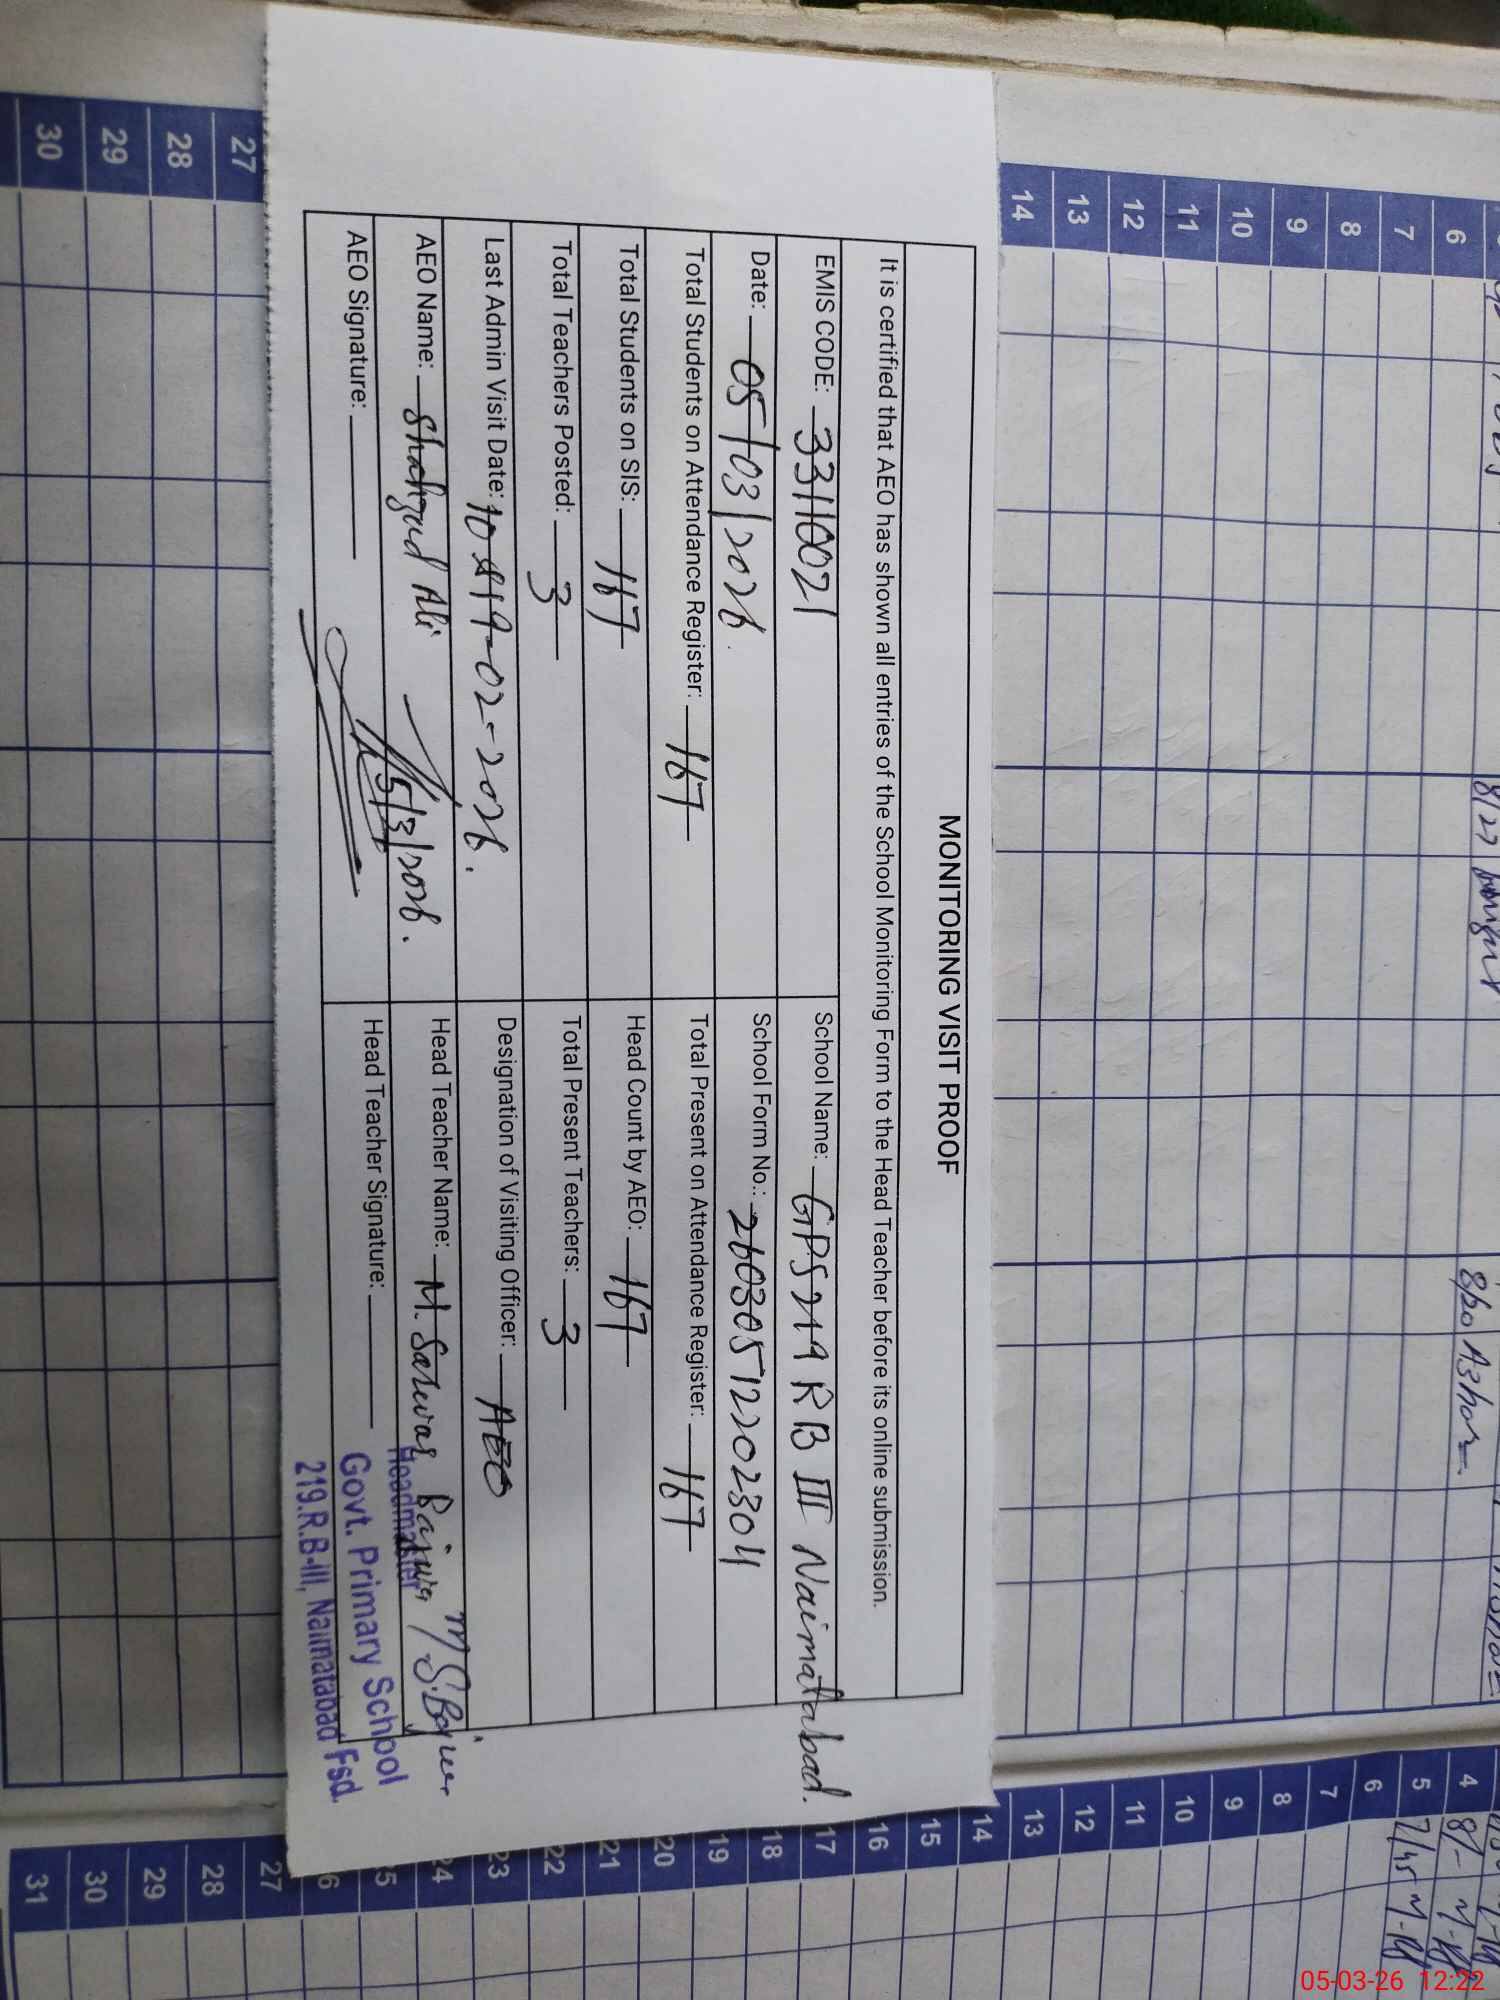 MONITORING VISIT PROOF
It is certified that AEO has shown all entries of the School Monitoring Form to the Head Teacher before its online submission.
EMIS CODE: 33110021
School Name: GPS 219 RB III Naimatabad.
Date: 05/03/2026.
School Form No.: 26030512202304
Total Students on Attendance Register: 167
Total Present on Attendance Register: 167
Total Students on SIS: 167
Head Count by AEO: 167
Total Teachers Posted: 3
Total Present Teachers: 3
Last Admin Visit Date: 19-02-2026.
Designation of Visiting Officer: AEO
AEO Name: Shahzad Ali
Head Teacher Name: M. Sarwar Bajwa
AEO Signature:
5/3/2026.
Head Teacher Signature:
Headmaster
Govt. Primary School
219.R.B-III, Naimatabad Fsd.
6
7
8
9
10
11
12
13
14
27
28
29
30
4 8/-
5 7/45
6
7
8
9
10
11
12
13
14
15
16
17
18
19
20
21
22
23
24
25
26
27
28
29
30
31
05-03-26 12:22